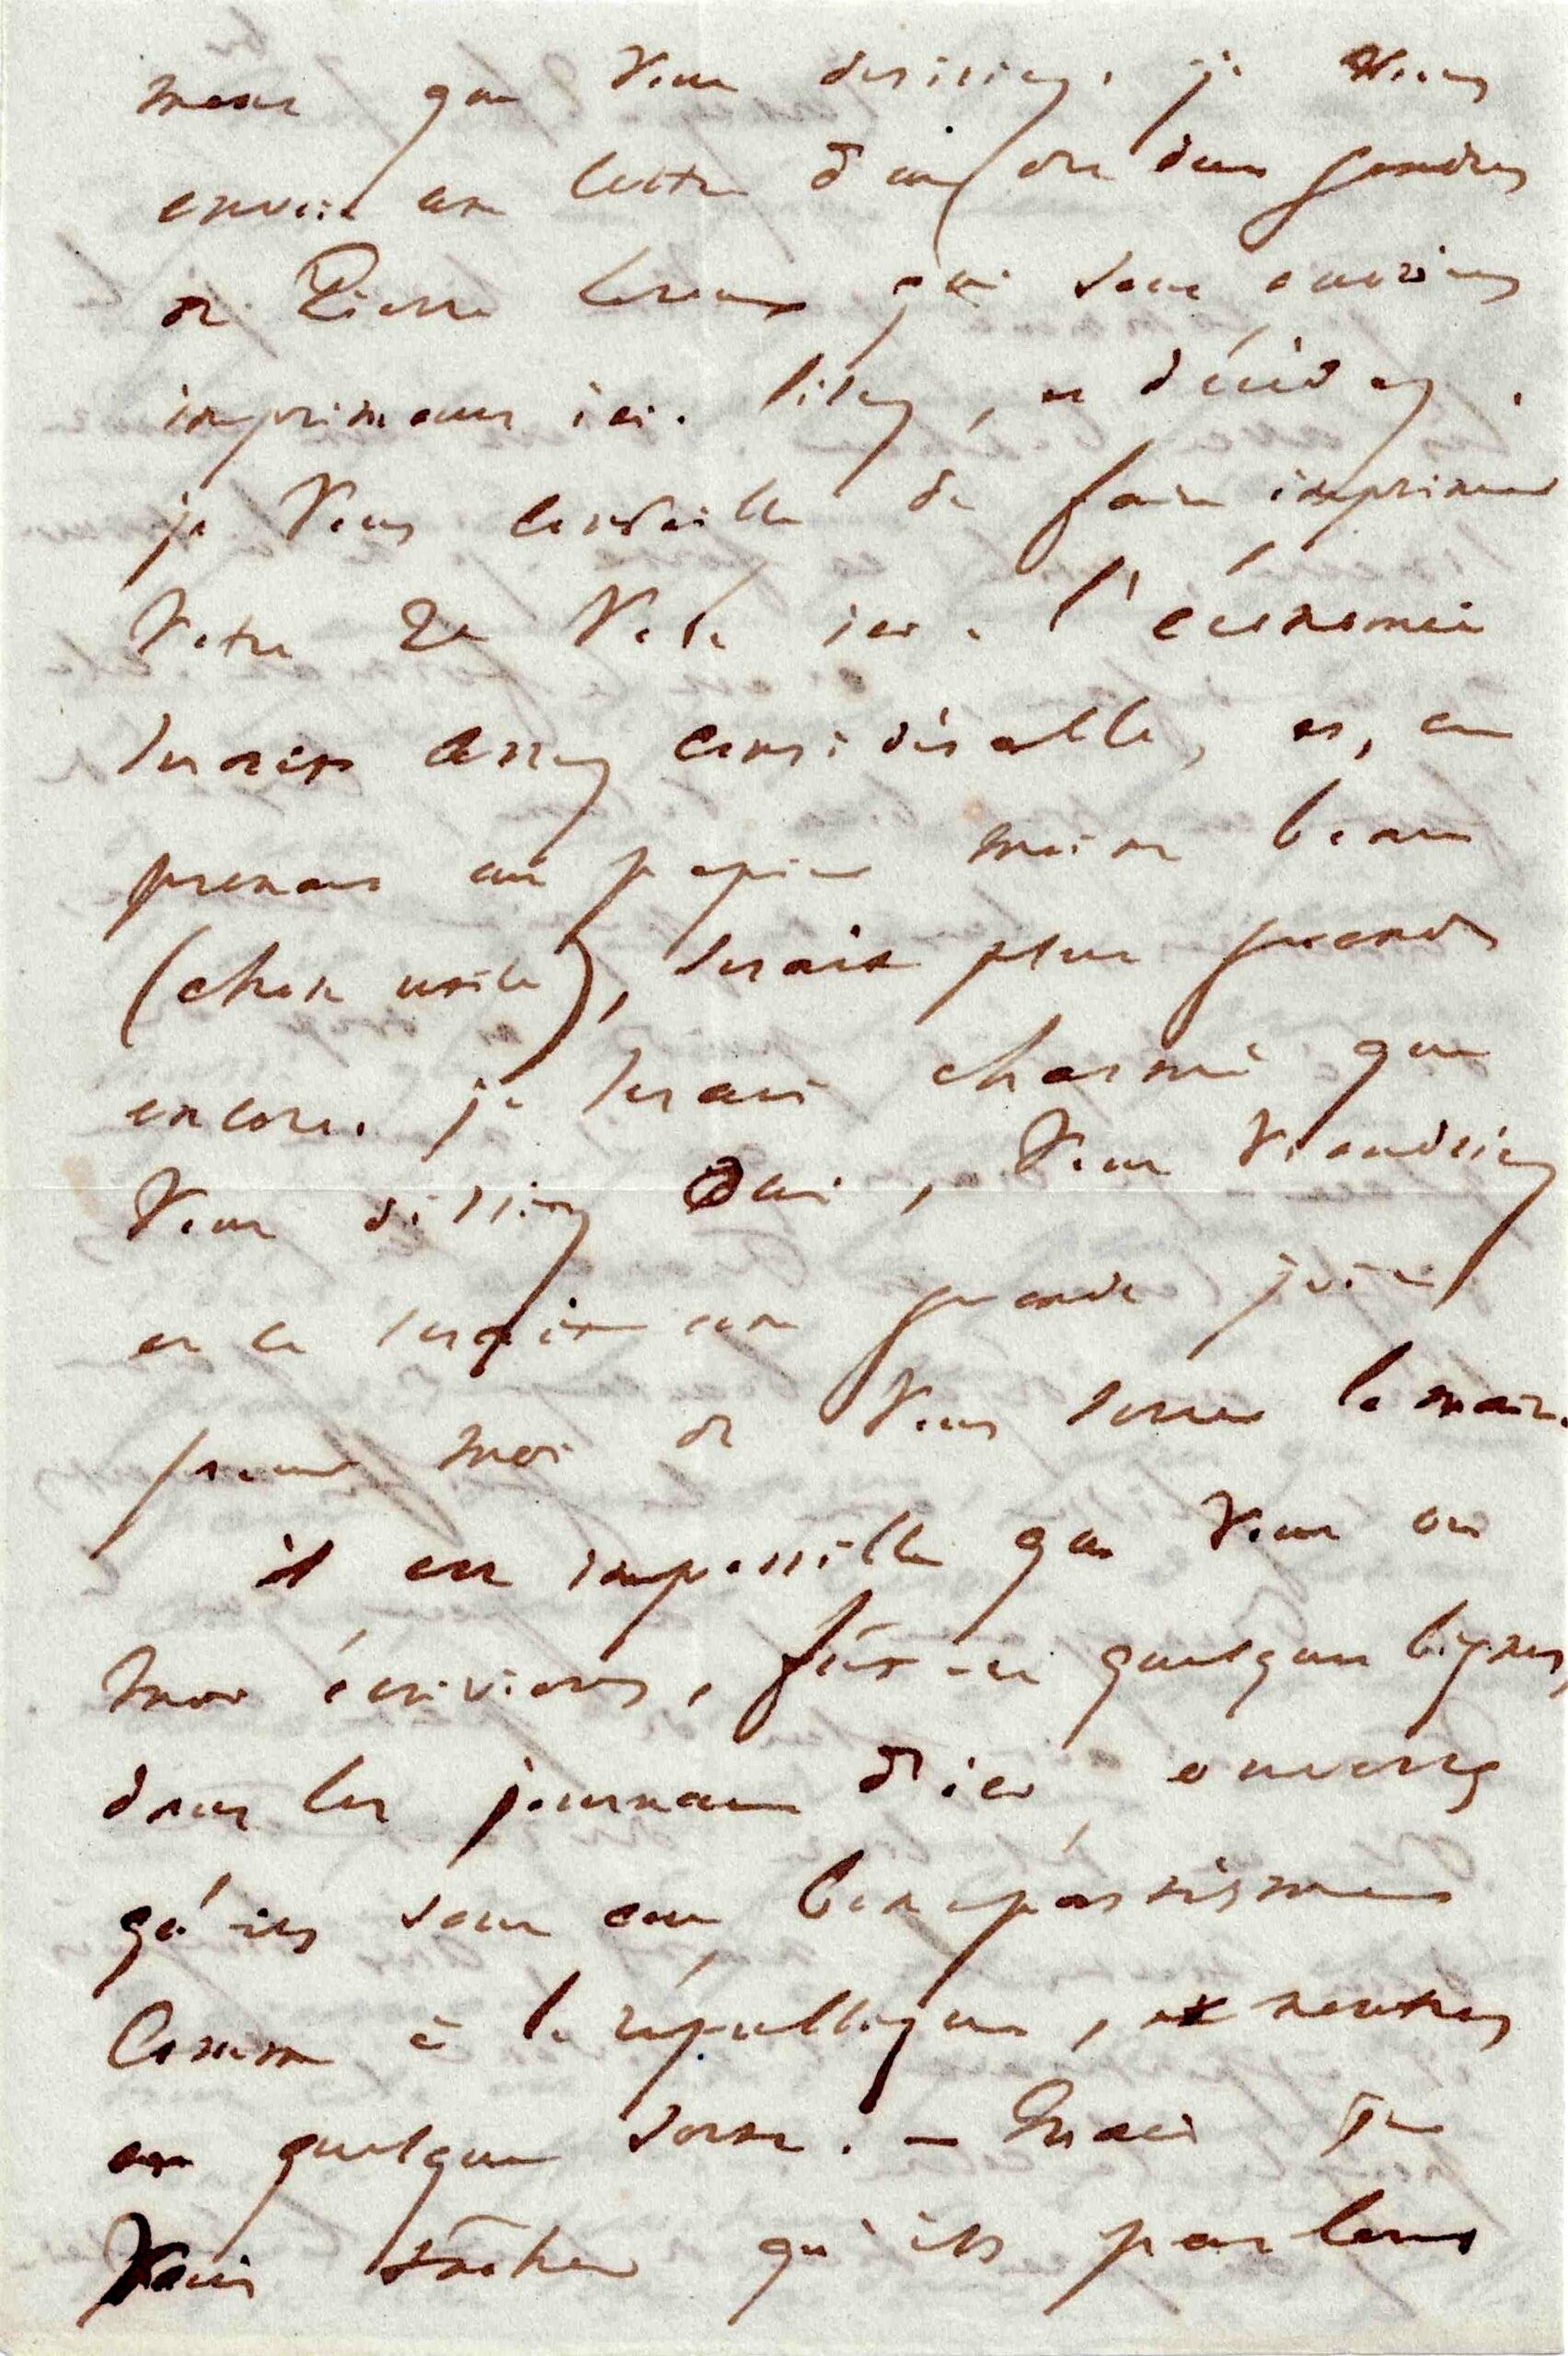 mens que vous désiriez. je vous
envoie une lettre d'un des deux gendres
de Pierre Leroux qui sont ouvriers
imprimeurs ici. lisez, et décidez.
je vous conseille de faire imprimer
votre 2e vol. ici. l'économie
serait assez considérable, et, en
prenant un papier moins beau
(chose utile), serait plus grande
encore. je serais charmé que
vous dissiez oui, vous viendriez
et ce serait une grande joie
pour moi de vous serrer la main.
il est impossible que vous ou
moi écrivions, fût-ce quelques lignes,
dans les journaux d'ici, ouverts
qu'ils sont au bonapartisme
comme à la république, et neutres
en quelque sorte. — Mais je
vais tâcher qu'ils parlent